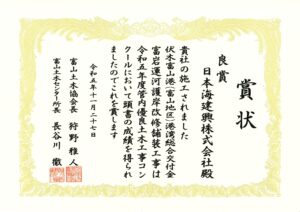 賞状
良賞
日本海建興株式会社殿
貴社の施工されました
伏木富山港(富山地区)港湾総合交付金
富岩運河護岸改修舗装工事は
令和五年度管内優良土木工事コン
クールにおいて頭書の成績を得られ
ましたのでこれを賞します
令和五年十一月二十七日
富山土木協会長 狩野雅人
富山土木センター所長 長谷川徹